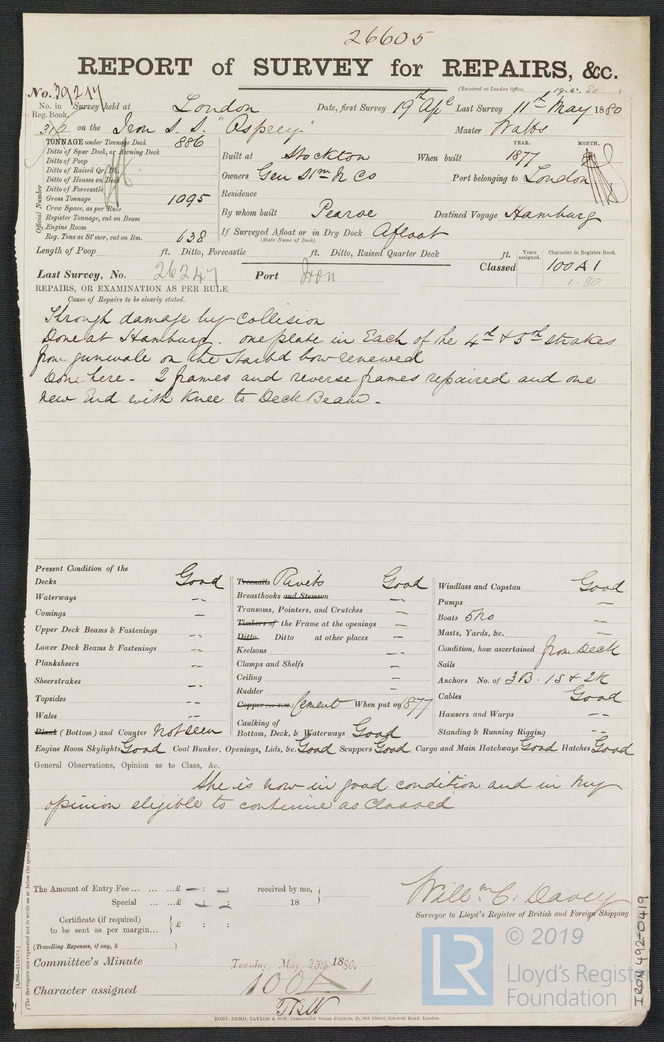 26605
REPORT of SURVEY for REPAIRS, &c.
(Received at London Office, 19.5. 80)
No. 39217
No. in Survey held at London Date, first Survey 19th Apl Last Survey 11th May 1880
Reg. Book.
312 on the Iron S. S. "Osprey" Master Wabbs
TONNAGE under Tonnage Deck 886
Ditto of Spar Deck, or Awning Deck
Ditto of Poop
Ditto of Raised Qr. Dk.
Ditto of Houses on Deck
Ditto of Forecastle
Gross Tonnage 1095
Crew Space, as per Rule
Register Tonnage, cut on Beam
Engine Room
Reg. Tons as St'mer, cut on Bm. 638
Official Number
Built at Stockton When built YEAR. 1877 MONTH.
Owners Gen Stm N Co Port belonging to London
Residence
By whom built Pearse Destined Voyage Hamburg
If Surveyed Afloat or in Dry Dock Afloat
(State Name of Dock)
Length of Poop ft. Ditto, Forecastle ft. Ditto, Raised Quarter Deck ft.
Years assigned. Character in Register Book.
Classed 100 A 1
1.80
Last Survey, No. 26247 Port Iron
REPAIRS, OR EXAMINATION AS PER RULE
Cause of Repairs to be clearly stated.
Through damage by Collision
Done at Hamburg. one plate in Each of the 4th & 5th strakes
from gunwale on the Starbd bow renewed
Done here - 2 frames and reverse frames repaired and one
new End with Knee to Deck Beam -
Present Condition of the
Decks Good
Waterways --
Comings --
Upper Deck Beams & Fastenings --
Lower Deck Beams & Fastenings --
Planksheers
Sheerstrakes --
Topsides --
Wales --
Plank (Bottom) and Counter Not seen
Treenails Rivets Good
Breasthooks and Stemson --
Transoms, Pointers, and Crutches --
Timbers of the Frame at the openings --
Ditto Ditto at other places --
Keelsons --
Clamps and Shelfs --
Ceiling --
Rudder --
Cement When put on 1877
Caulking of
Bottom, Deck, & Waterways Good
Windlass and Capstan Good
Pumps --
Boats 5 No --
Masts, Yards, &c. --
Condition, how ascertained from Deck
Sails
Anchors No. of 3B. 1S & 2K
Cables Good
Hawsers and Warps --
Standing & Running Rigging --
Engine Room Skylights Good Coal Bunker, Openings, Lids, &c. Good Scuppers Good Cargo and Main Hatchways Good Hatches Good
General Observations, Opinion as to Class, &c.
She is now in good condition and in my
opinion eligible to continue as Classed
The Amount of Entry Fee ... ... ...£ - : - : received by me,
Special ... ...£ - : - : 18
Certificate (if required)
to be sent as per margin... £ : :
(Travelling Expenses, if any, £ )
Willm C. Davey
Surveyor to Lloyd's Register of British and Foreign Shipping
Committee's Minute Tuesday May 25th 1880.
Character assigned 100 A 1
© 2019
LR
Lloyd's Register
Foundation
IRON 492-0419